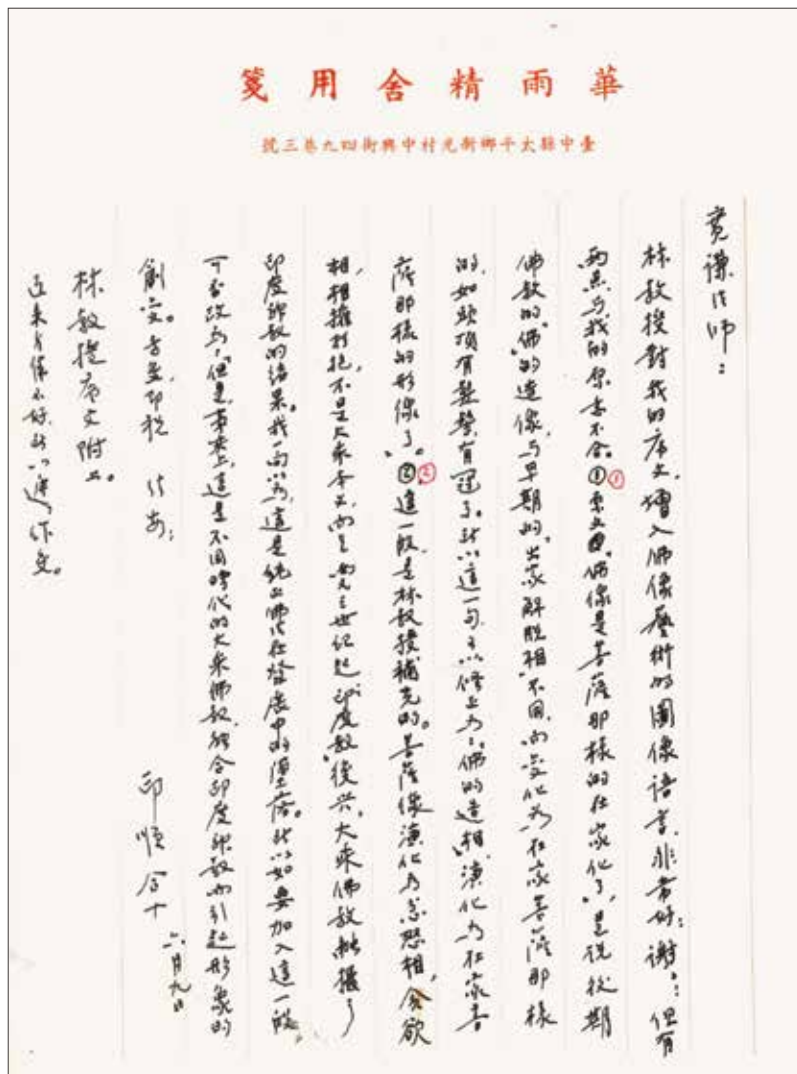 華雨精舍用箋
臺中縣太平鄉新光村中興街四九巷三號
寬謙法師：
林教授對我的序文，增入佛像藝術的圖像語言，非常好，謝謝：但有
兩點與我的原意不合。①①原文，佛像是菩薩那樣的在家化了，是說後期
佛教的「佛」的造像，與早期的「出家解脫相」不同，而變化為「在家菩薩那樣
的，如頭頂有髮髻，有冠了。所以這一句，可以修正為：「佛的造相，演化為在家菩
薩那樣的形像了。」②②這一段，是林教授補充的。菩薩像演化為忿怒相，貪欲
相相擁封抱，不是大乘本義，而是世紀起，印度教復興，大乘佛教融攝了
印度神教的結果。我一向以為，這是純正佛法在發展中的墮落。所以如要加入這一段，
可否改為，「但是，事實上，這是不同時代的大乘佛教，融合印度神教而引起形象的
劇變。」專此，即祝 法安：
印順合十
六月九日
林教授序文附上。
近來身體不好，所以遲作覆。